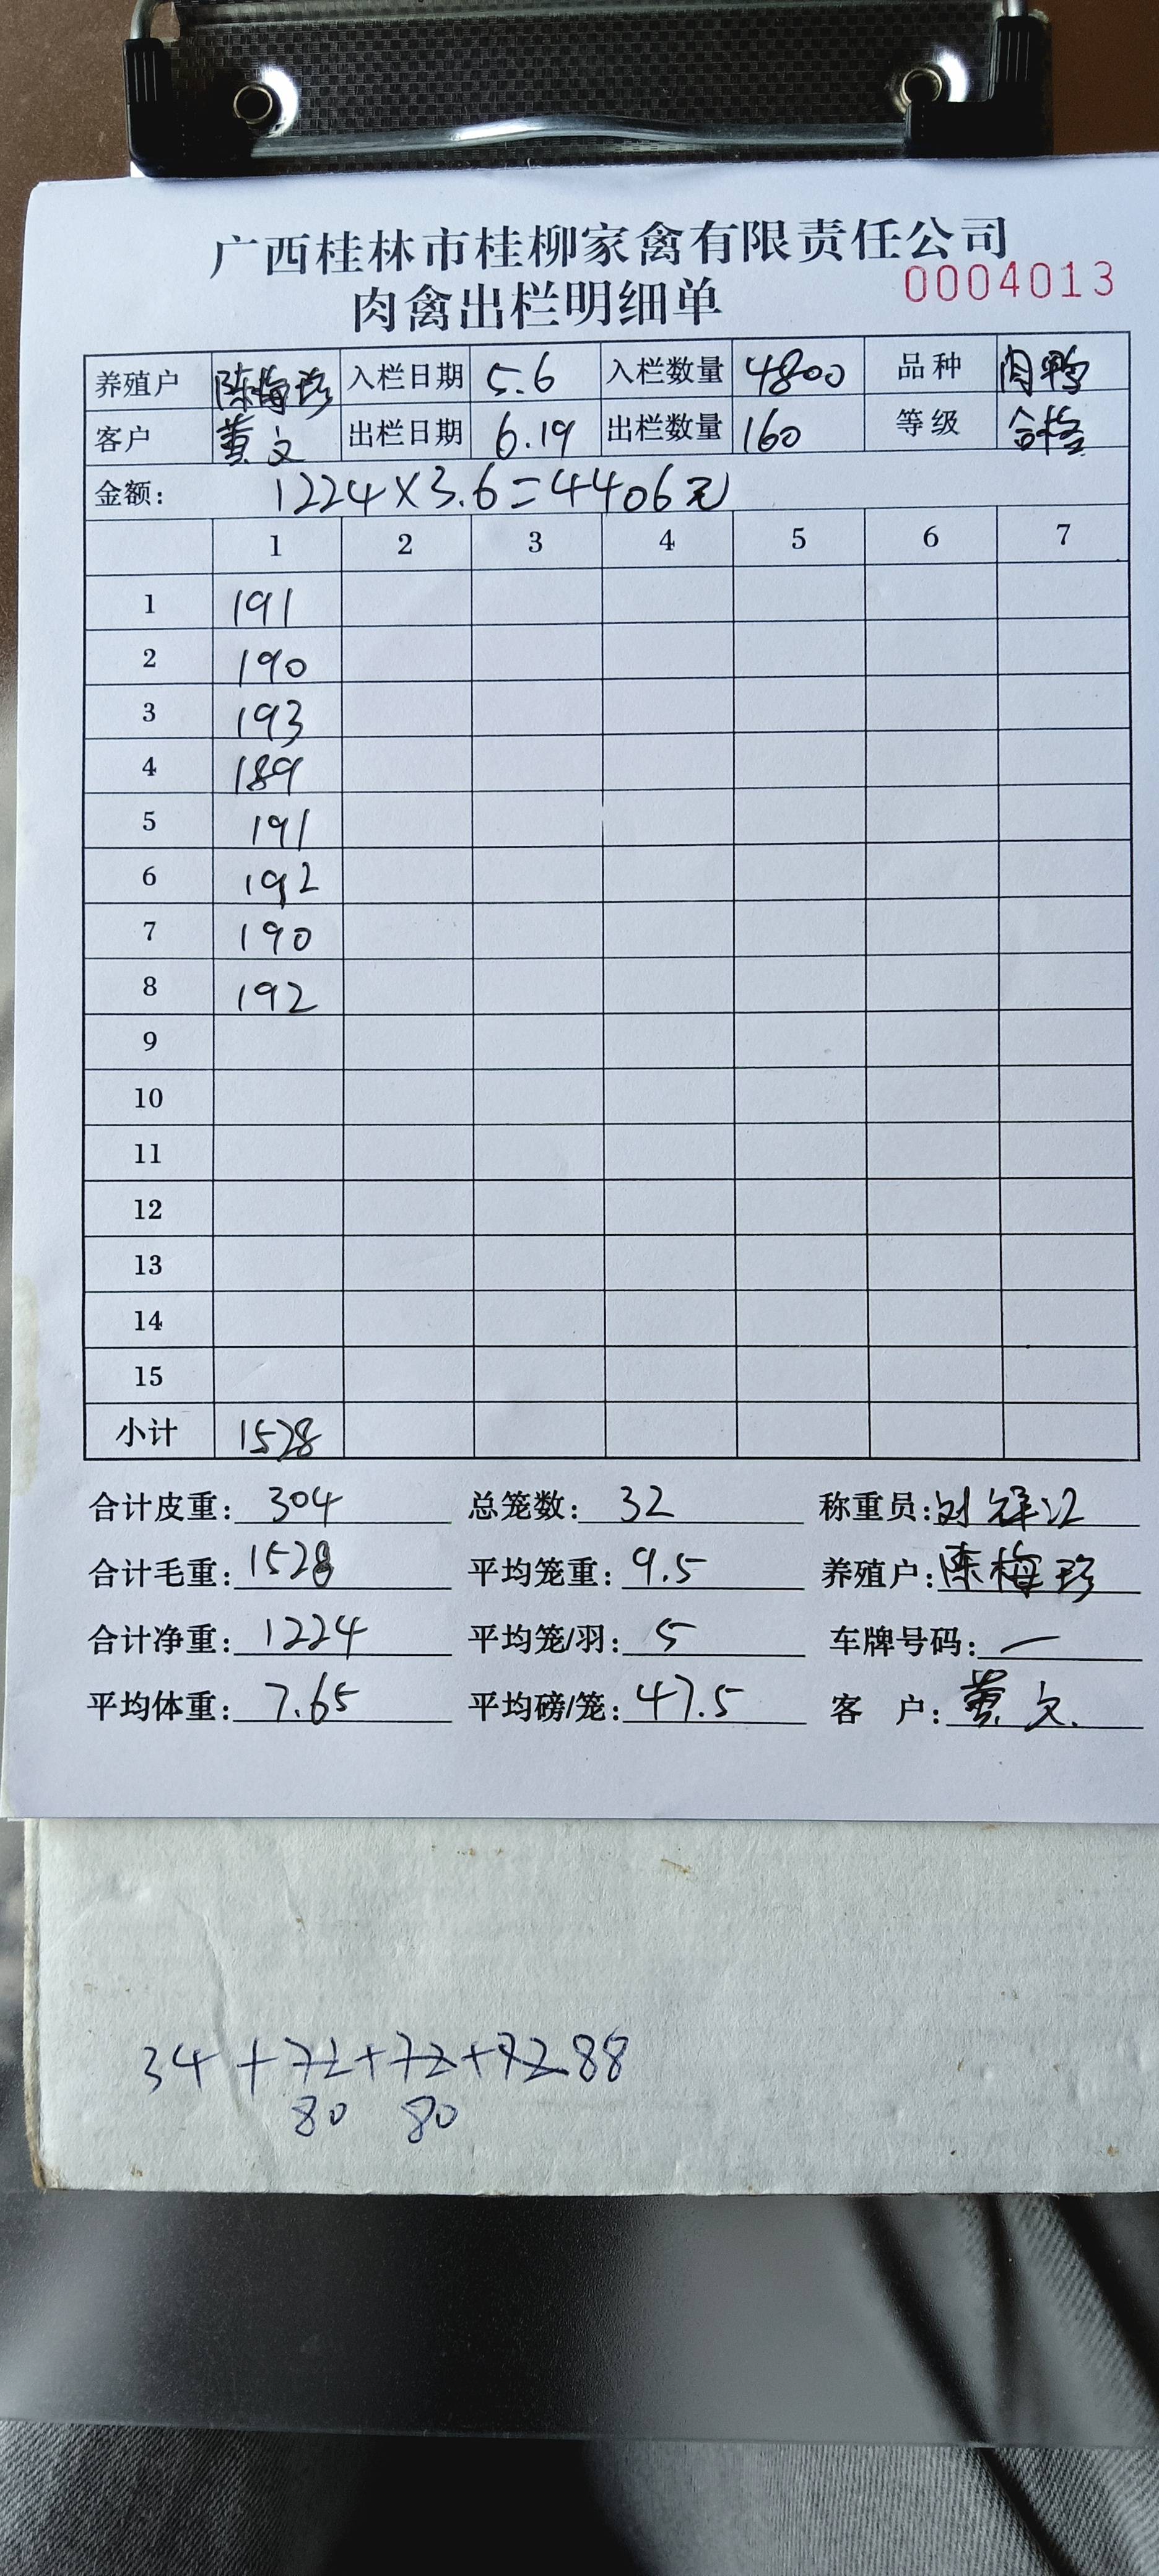 广西桂林市桂柳家禽有限责任公司
肉禽出栏明细单 0004013
养殖户 陈梅珍 入栏日期 5.6 入栏数量 4800 品种 肉鸭
客户 黄文 出栏日期 6.19 出栏数量 160 等级 合格
金额: 1224×3.6=4406元
1 2 3 4 5 6 7
1 191
2 190
3 193
4 189
5 191
6 192
7 190
8 192
9
10
11
12
13
14
15
小计 1528
合计皮重: 304 总笼数: 32 称重员: 刘
合计毛重: 1528 平均笼重: 9.5 养殖户: 陈梅珍
合计净重: 1224 平均笼/羽: 5 车牌号码: 一
平均体重: 7.65 平均磅/笼: 47.5 客 户: 黄文
34+72+72+7288
80 80